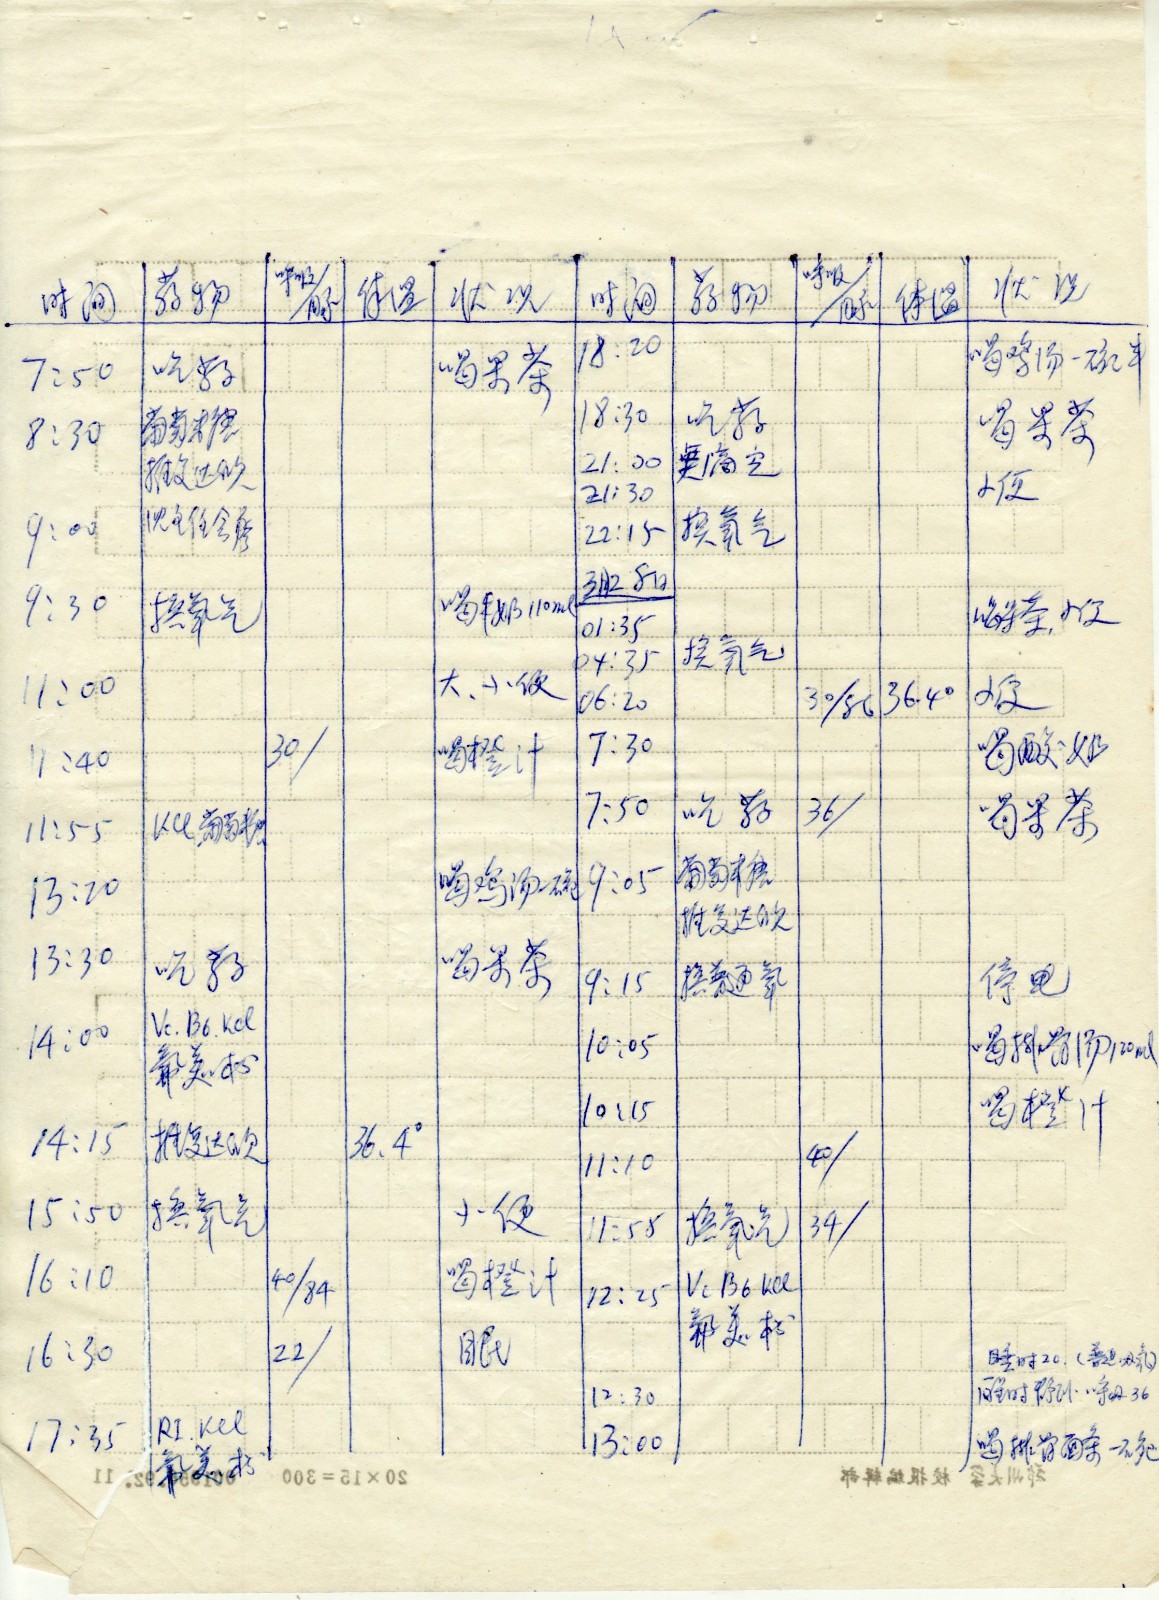 时间 药物 呼吸/脉 体温 状况
7:50 吃药 喝果茶
8:30 葡萄糖
推复达欣
9:00 沈主任会诊
9:30 换氧气 喝牛奶110ml
11:00 大、小便
11:40 30/ 喝橙汁
11:55 Kcl 葡萄糖
13:20 喝鸡汤一碗
13:30 吃药 喝果茶
14:00 Vc.B6.Kcl
氟美松
14:15 推复达欣 36.4°
15:50 换氧气 小便
16:10 40/84 喝橙汁
16:30 22/ 眠
17:35 RI.Kcl
氟美松
时间 药物 呼吸/脉 体温 状况
18:20 喝鸡汤一碗半
18:30 吃药 喝果茶
21:00 滴完
21:30 小便
22:15 换氧气
8日
01:35 喝果茶,小便
04:35 换氧气
06:20 30/86 36.4° 小便
7:30 喝酸奶
7:50 吃药 36/ 喝果茶
9:05 葡萄糖
推复达欣
9:15 换普通氧 停电
10:05 喝排骨汤120ml
10:15 喝橙汁
11:10 40/
11:55 换氧气 34/
12:25 Vc B6 Kcl
氟美松
睡时20.(普通氧)
12:30 醒时 呼吸36
13:00 喝排骨面条一碗
郑州大学校报编辑部 20×15=300 92.11